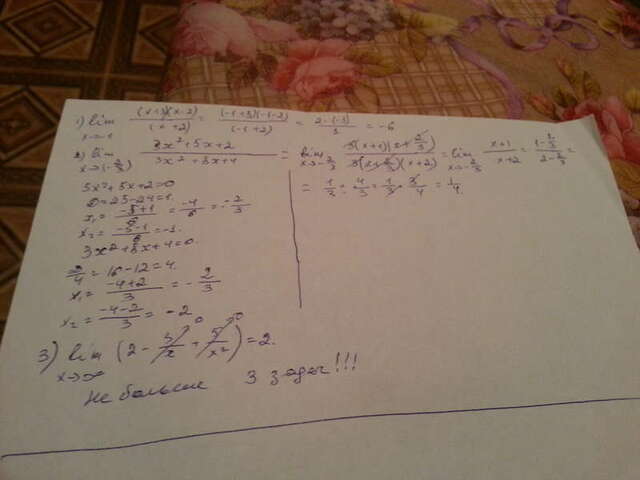 1) lim x→-1 (x+3)(x-2)/(x+2) = (-1+3)(-1-2)/(-1+2) = 2·(-3)/1 = -6
2) lim x→(-2/3) 3x²+5x+2 / 3x²+8x+4 = lim x→-2/3 3(x+1)(x+2/3) / 3(x+2/3)(x+2) = lim x→-2/3 x+1 / x+2 =
3x²+5x+2=0
D=25-24=1.
= 1/3 : 4/3 = 1/3 · 3/4 = 1/4
x₁ = -5+1 / 6 = -4/6 = -2/3
x₂ = -5-1 / 6 = -1.
3x²+8x+4=0.
D/4 = 16-12=4.
x₁ = -4+2 / 3 = -2/3
x₂ = -4-2 / 3 = -2
3) lim x→∞ (2 - 3/x + 5/x²) = 2.
Не больше 3 задач!!!